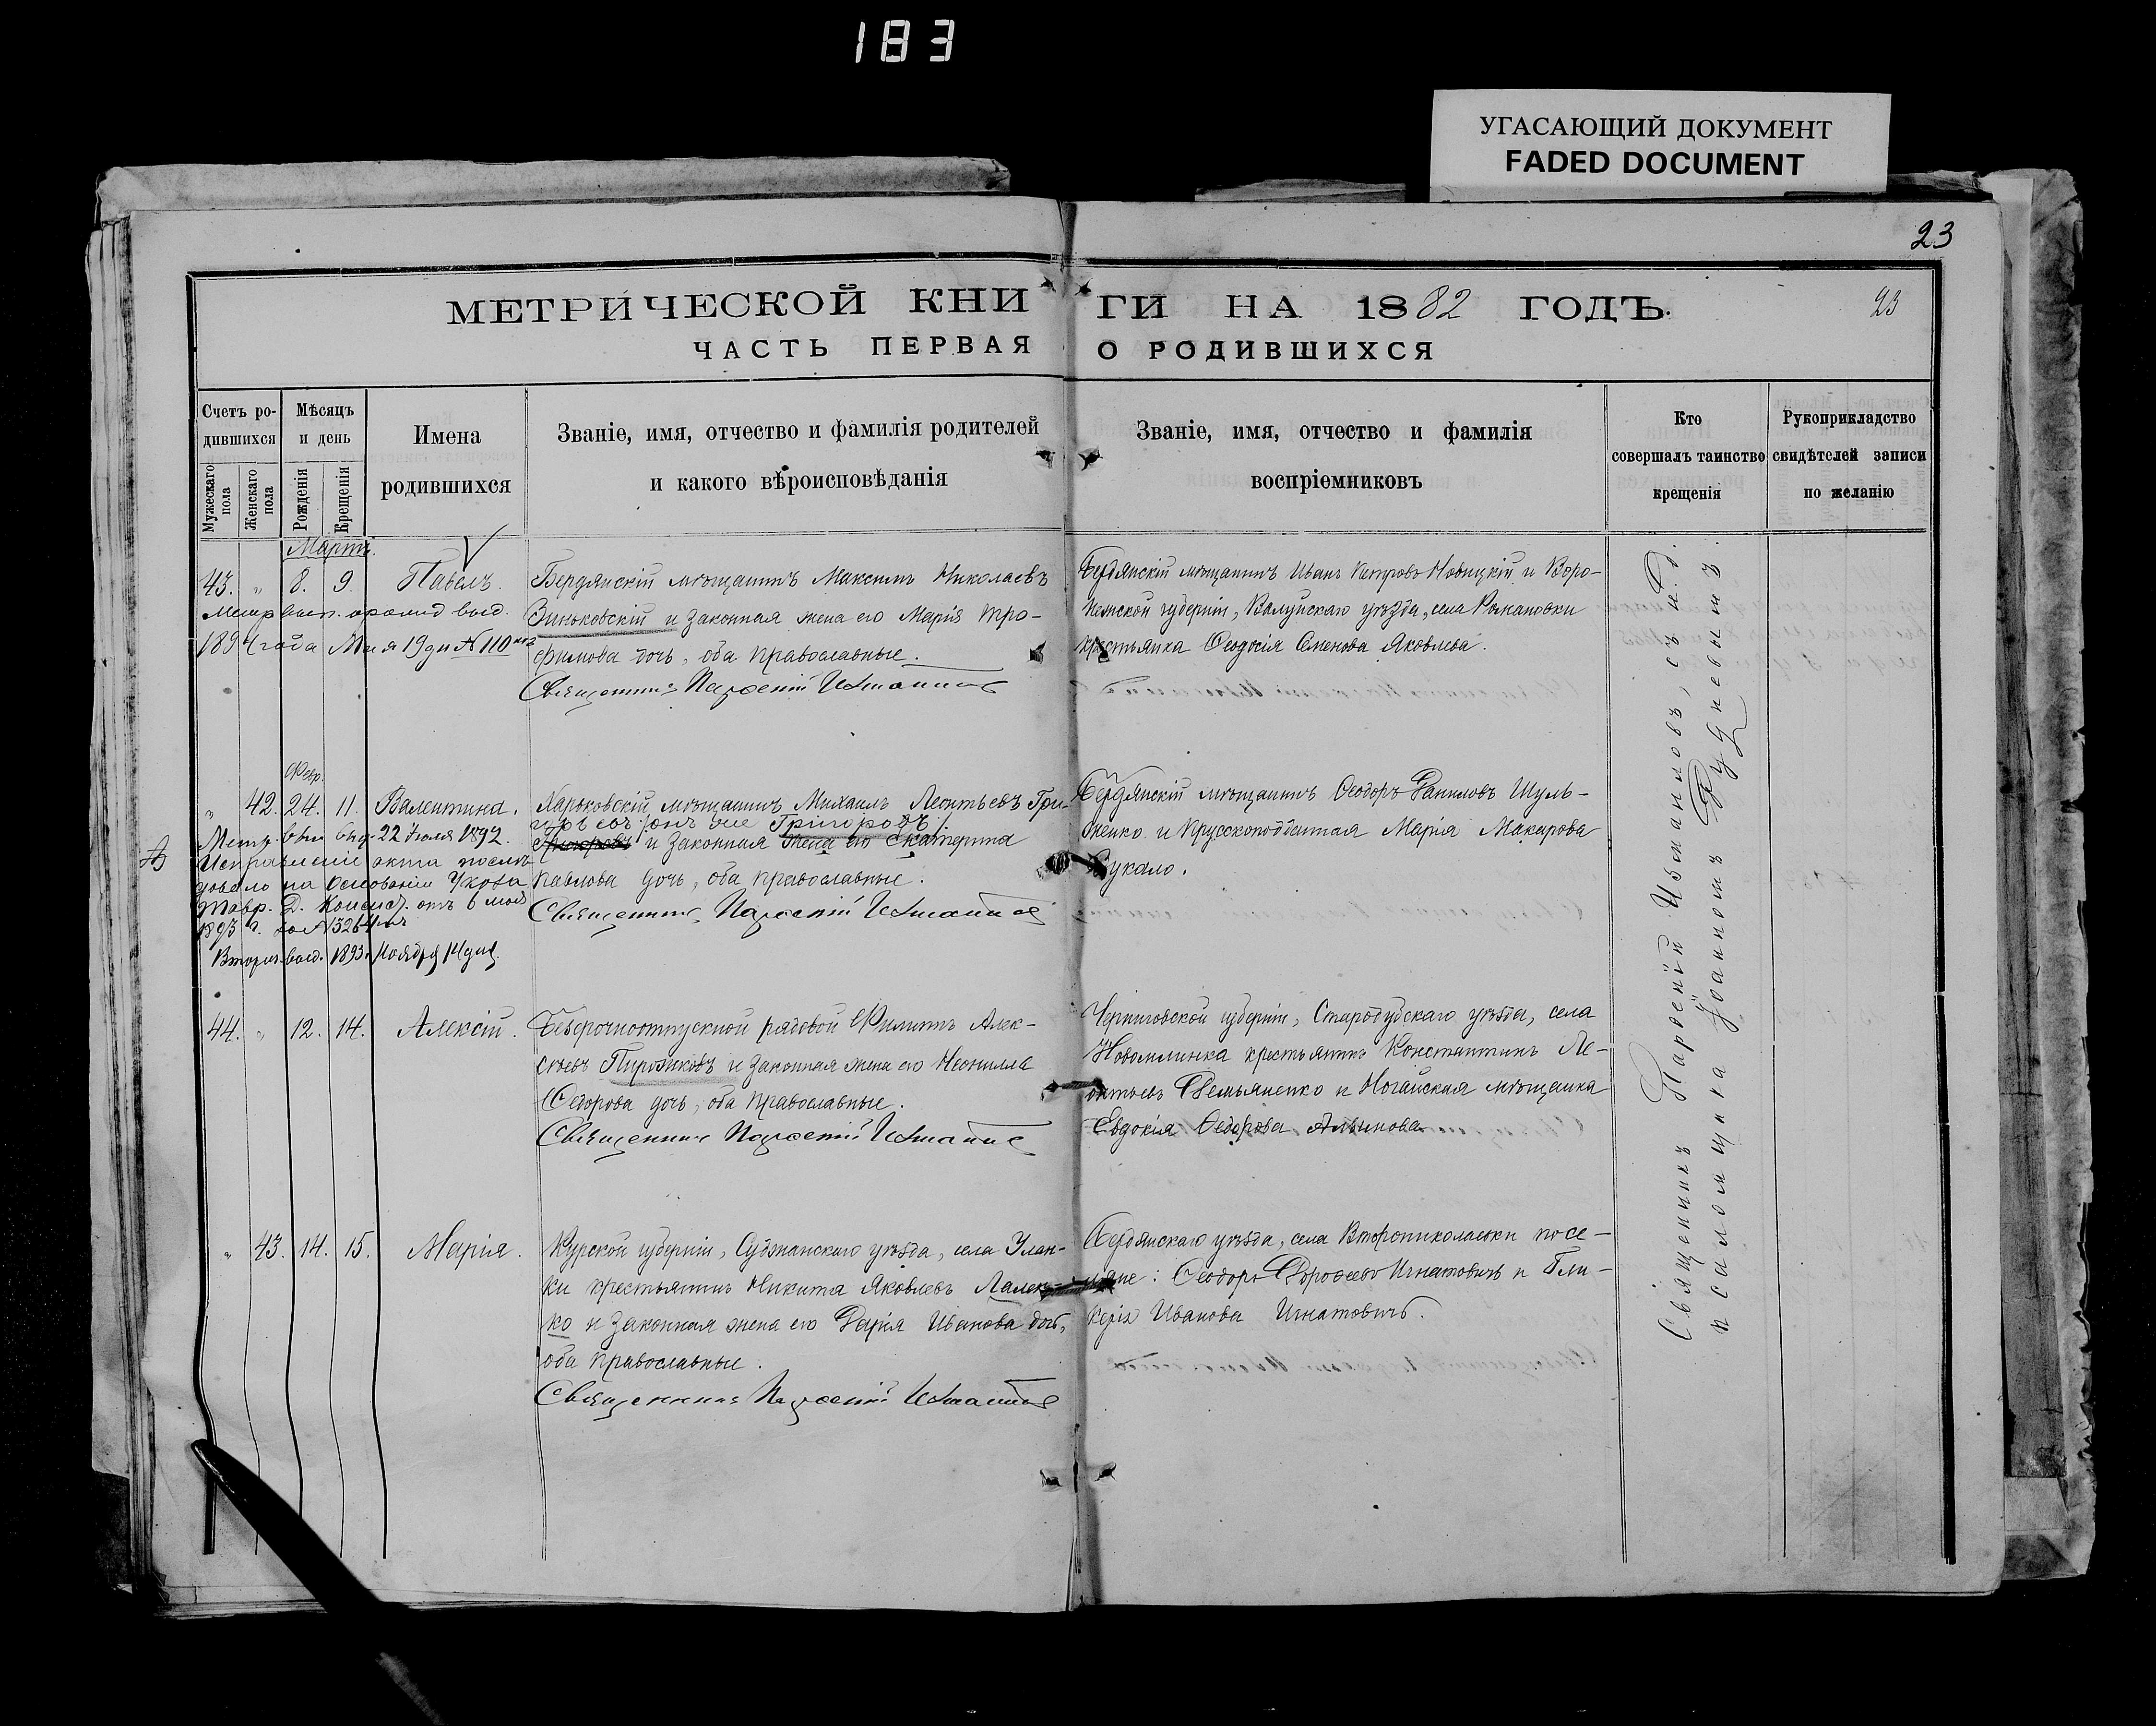 183
УГАСАЮЩИЙ ДОКУМЕНТ
FADED DOCUMENT
23
МЕТРИЧЕСКОЙ КНИГИ НА 1882 ГОДЪ.
23
ЧАСТЬ ПЕРВАЯ О РОДИВШИХСЯ
Счетъ ро-
дившихся
Мужескаго
пола
Женскаго
пола
Мѣсяцъ
и день
Рожденія
Крещенія
Имена
родившихся
Званіе, имя, отчество и фамилія родителей
и какого вѣроисповѣданія
Званіе, имя, отчество и фамилія
воспріемниковъ
Кто
совершалъ таинство
крещенія
Рукоприкладство
свидѣтелей записи
по желанію
Мартъ.
43. " 8. 9. Павелъ.
1894 года Мая 19 дн № 110
Бердянскій мѣщанинъ Максимъ Николаевъ
Зиньковскій и законная жена его Марія Тро-
фимова дочь, оба православные.
Священникъ Парѳеній Измаиловъ
Бердянскій мѣщанинъ Иванъ Петровъ Новицкій и Воро-
нежской губерніи, Валуйскаго уѣзда, села Романовки
крестьянка Ѳеодосія Семенова Яковлева.
Февр.
" 42. 24. 11. Валентина.
Метр. вып. выд. 22 Іюля 1892.
Исправленіе акта послѣ-
довало на основаніи Указа
Тавр. Д. Консист. отъ 6
1893 г. за №
Вторич. выд. 1893 г. Ноября 14 дня.
Харьковскій мѣщанинъ Михаилъ Леонтьевъ Гри-
онъ же Григоровъ/
и законная жена его Екатерина
Павлова дочь, оба православные.
Священникъ Парѳеній Измаиловъ
Бердянскій мѣщанинъ Ѳеодоръ Даниловъ Шуль-
женко и Прусскоподданная Марія Макарова
Зукало.
44. " 12. 14. Алексій.
Безсрочноотпускной рядовой Филиппъ Алек-
сѣевъ Пирожковъ и законная жена его Неонилла
Ѳедорова дочь, оба православные.
Священникъ Парѳеній Измаиловъ
Черниговской губерніи, Стародубскаго уѣзда, села
Новомлинка крестьянинъ Константинъ Ле-
онтьевъ Демьяненко и Ногайская мѣщанка
Евдокія Ѳедорова
" 43. 14. 15. Марія.
Курской губерніи, Суджанскаго уѣзда, села Улан-
ки крестьянинъ Никита Яковлевъ
ко и законная жена его Дарія Иванова дочь,
оба православные.
Священникъ Парѳеній Измаиловъ
Бердянскаго уѣзда, села Второниколаевки посе-
ляне: Ѳеодоръ Дороѳеевъ Игнатовичъ и Гли-
керія Иванова Игнатовичъ.
Священникъ Парѳеній Измаиловъ, съ и. д.
псаломщика Іоанномъ Рудневымъ.